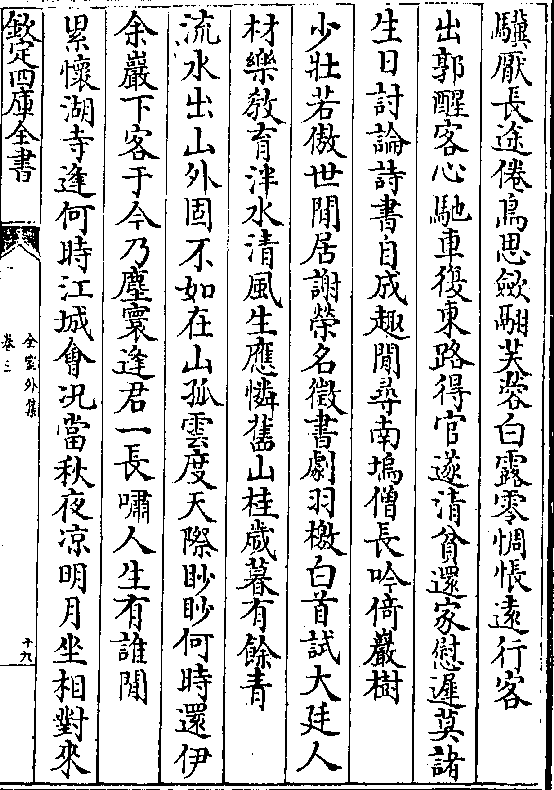 驥厭長途倦鳥思歛翮芙蓉白露零惆悵遠行客
出郭醒客心馳車復東路得官遂清貧還家慰遲莫諸
生日討論詩書自成趣閒尋南塢僧長吟倚巖樹
少壯若傲世閒居謝榮名徵書劇羽檄白首試大廷人
材樂敎育泮水清風生應憐舊山桂歲暮有餘青
流水出山外固不如在山孤雲度天際眇眇何時還伊
余巖下客于今乃塵寰逢君一長嘯人生有誰閒
累懷湖寺逢何時江城會况當秋夜凉明月坐相對來
欽定四庫全書
全室外集
卷三
十九